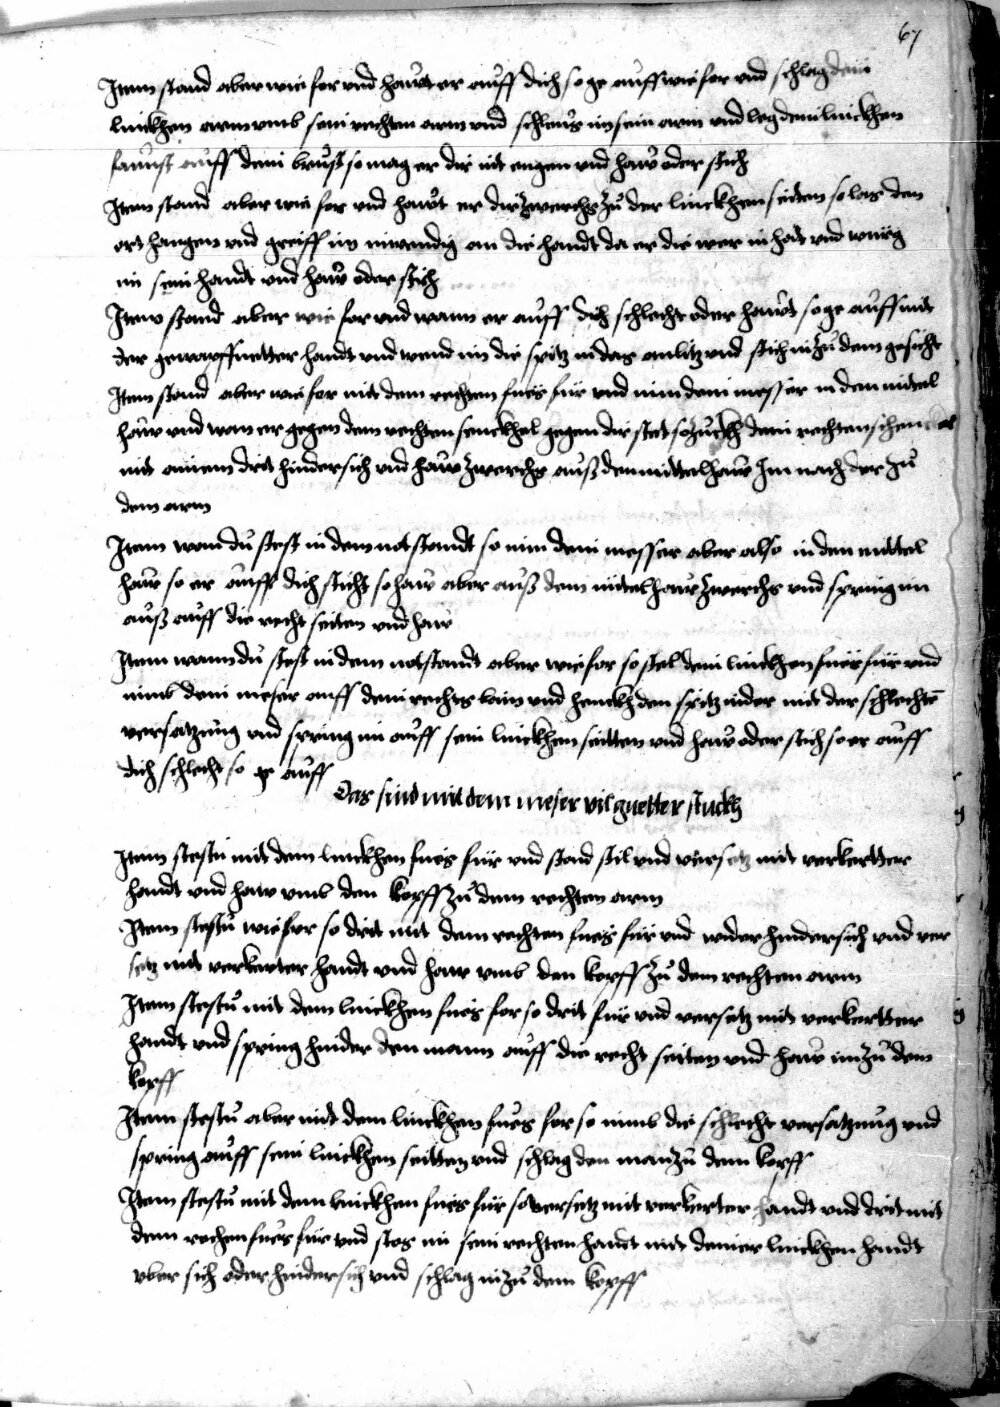 67
Item stand aber wie for vnd hawt er auff dich so ge auff wie for vnd schlag dein
linckhen arm vmb sein rechten arm vnd schleus im sein arm vnd leg dein linckhen
faust auff dein brust so mag er dir nit engen vnd haw oder stich
Item stand aber wie for vnd hawt er dir zwerchs zu der linckhen seiten so las den
ort hangen vnd greiff im inwendig an die handt da er die wer in hat vnd würg
im sein handt vnd haw oder stich
Item stand aber wie for vnd wann er auff dich schlecht oder hawt so ge auff mit
der gewapffnetter handt vnd wend im die spitz in das antlitz vnd stich im zu dem gesicht
Item stand aber wie for mit dem rechten fues für vnd nim dein messer in den mitel
haw vnd wan er gegen dem rechten schenckhel gegen dir stet so zuckh dein rechten schenckel
mit ainem drit hindersich vnd haw zwerchs auß dem mittelhaw Im nach der zu
dem arm
Item wan du stest in dem notstandt so nim dein messer aber also in den mittel
haw so er auff dich sticht so haw aber auß dem mitelhaw zwerchs vnd spring im
auß auff die recht seiten vnd haw
Item wann du stest in dem notstandt aber wie for so stel dein linckhen fues für vnd
nimb dein meser auff dein rechts bain vnd henckh den spitz nider mit der schlechtē
versatzung vnd spring im auff sein linckhen seitten vnd haw oder stich so er auff
dich schlecht so ge auff
Das sind mit dem meser vil guetter stuckh
Item stestu mit dem linckhen fues für vnd stand stil vnd versetz mit verkertter
handt vnd haw vmb den kopff zu dem rechten arm
Item stestu wie for so drit mit dem rechten fues für vnd wider hindersich vnd ver
setz mit verkerter handt vnd haw vmb den kopff zu dem rechten arm
Item stestu mit dem linckhen fues for so drit für vnd versetz mit verkertter
handt vnd spring hinder den mann auff die recht seiten vnd haw im zu dem
kopff
Item stestu aber mit dem linckhen fues for so nimb die schlecht versatzung vnd
spring auff sein linckhen seitten vnd schlag den man zu dem kopff
Item stestu mit dem linckhen fues für so versetz mit verkerter handt vnd drit mit
dem rechen fues für vnd stos im sein rechten handt mit deiner linckhen handt
vber sich oder hindersich vnd schlag im zu dem kopff